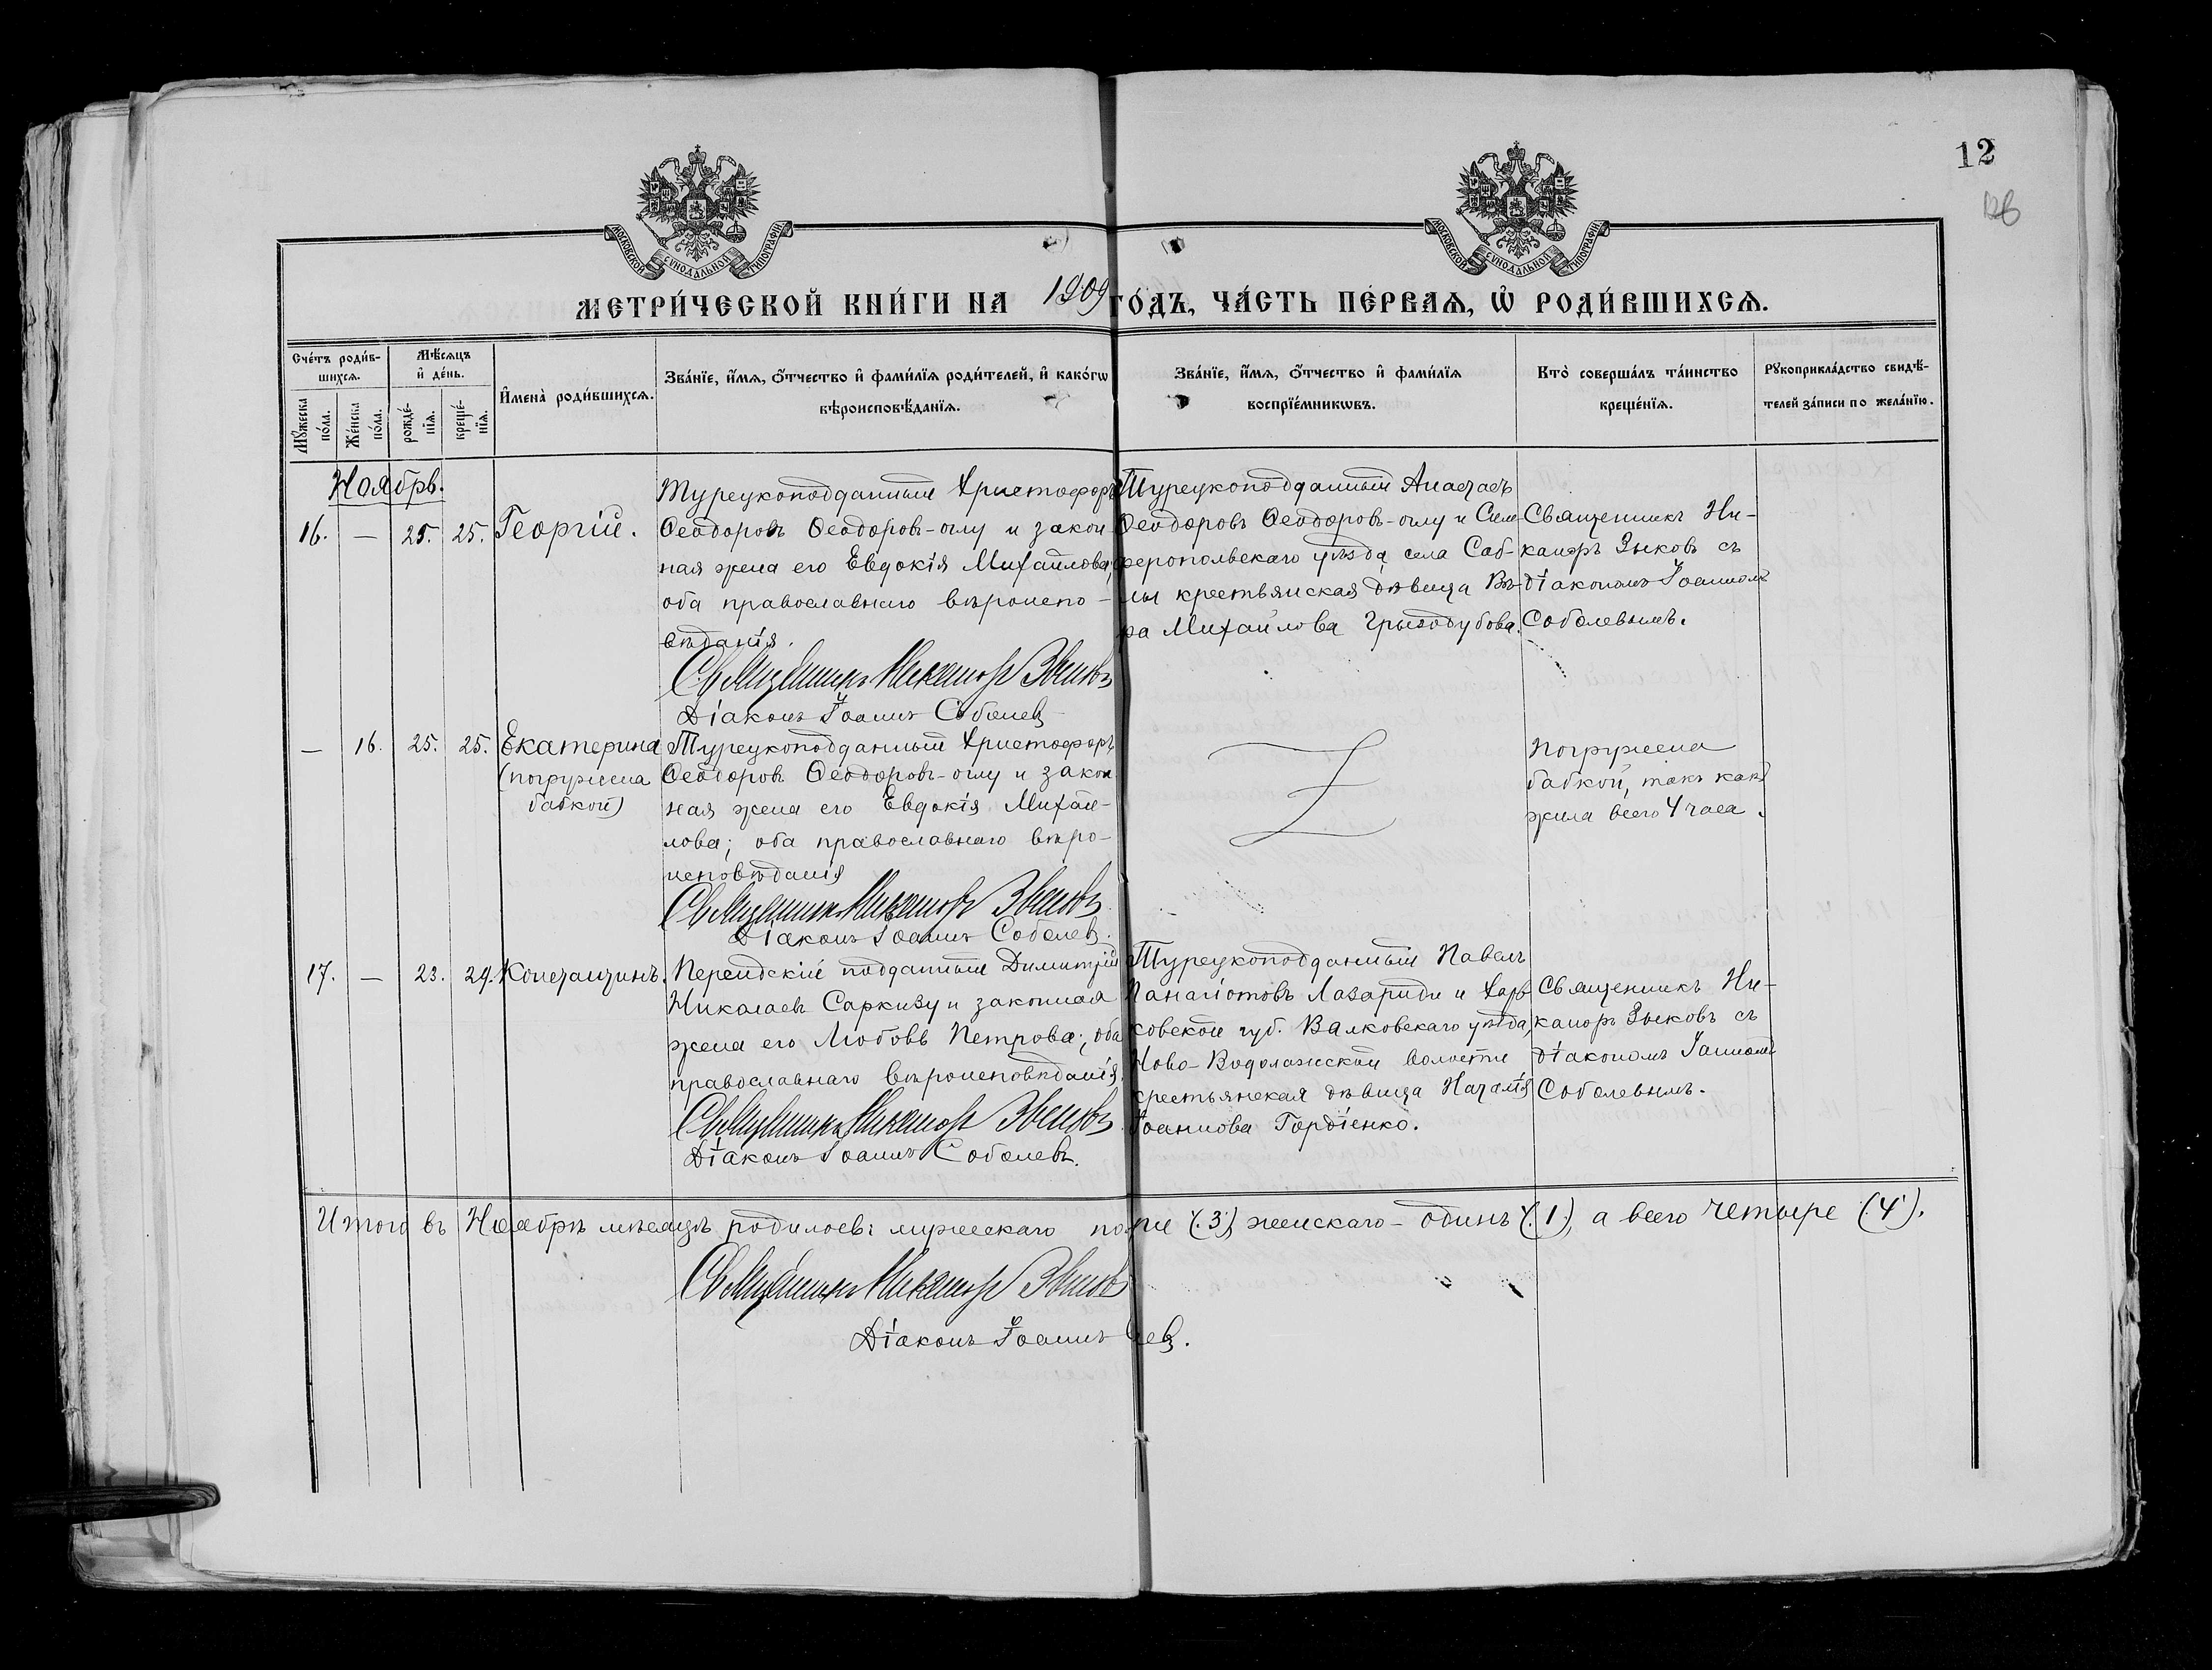 12
МОСКОВСКОЙ СУНОДАЛЬНОЙ ТИПОГРАФІИ
МОСКОВСКОЙ СУНОДАЛЬНОЙ ТИПОГРАФІИ
МЕТРИ́ЧЕСКОЙ КНИ́ГИ НА 1909 ГО́ДЪ, ЧА́СТЬ ПЕ́РВАѦ, Ѡ҆ РОДИ́ВШИХСѦ.
Сче́тъ роди́в-
шихсѧ.
Мѣ́сѧцъ
и҆ де́нь.
Мꙋ́жеска
по́ла.
Же́нска
по́ла.
рожде́-
нїѧ.
креще́-
нїѧ.
И҆мена̀ роди́вшихсѧ.
Зва́нїе, и҆́мѧ, ѻ҆́тчество и҆ фами́лїѧ роди́телей, и҆ како́гѡ
вѣроисповѣ́данїѧ.
Зва́нїе, и҆́мѧ, ѻ҆́тчество и҆ фами́лїѧ
воспрїе́мникѡвъ.
Кто̀ соверша́лъ та́инство
креще́нїѧ.
Рꙋкоприкла́дство свидѣ́-
телей за́писи по жела́нїю.
Ноябрь.
16. — 25. 25. Георгій.
Турецкоподданный Христофоръ
Ѳеодоровъ Ѳеодоровъ-оглу и закон
ная жена его Евдокія Михайлова;
оба православнаго вѣроиспо-
вѣданія.
Священникъ Никаноръ Зыковъ
Діаконъ Іоаннъ Соболевъ
Турецкоподданный Анастасъ
Ѳеодоровъ Ѳеодоровъ-оглу и Сим-
феропольскаго уѣзда села Саб-
лы крестьянская дѣвица Вѣ-
ра Михайлова Грызодубова.
Священникъ Ни-
каноръ Зыковъ съ
діакономъ Іоанномъ
Соболевымъ.
— 16. 25. 25. Екатерина
(погружена
бабкой)
Турецкоподданный Христофоръ
Ѳеодоровъ Ѳеодоровъ-оглу и закон
ная жена его Евдокія Михай-
лова; оба православнаго вѣро-
исповѣданія
Священникъ Никаноръ Зыковъ
Діаконъ Іоаннъ Соболевъ.
Погружена
бабкой, такъ какъ
жила всего 4 часа.
17. — 23. 29. Константинъ.
Персидскій подданный Димитрій
Николаевъ Саркизу и законная
жена его Любовь Петрова; оба
православнаго вѣроисповѣданія.
Священникъ Никаноръ Зыковъ
Діаконъ Іоаннъ Соболевъ.
Турецкоподданный Павелъ
Панагіотовъ Лазариди и Харь
ковской губ. Валковскаго уѣзда,
Ново-Водолажской волости
крестьянская дѣвица Наталія
Іоаннова Гордіенко.
Священникъ Ни-
каноръ Зыковъ съ
діакономъ Іоанномъ
Соболевымъ.
Итого въ Ноябрѣ мѣсяцѣ родилось: мужескаго пола (3), женскаго - одинъ (1), а всего четыре (4).
Священникъ Никаноръ Зыковъ
Діаконъ Іоаннъ